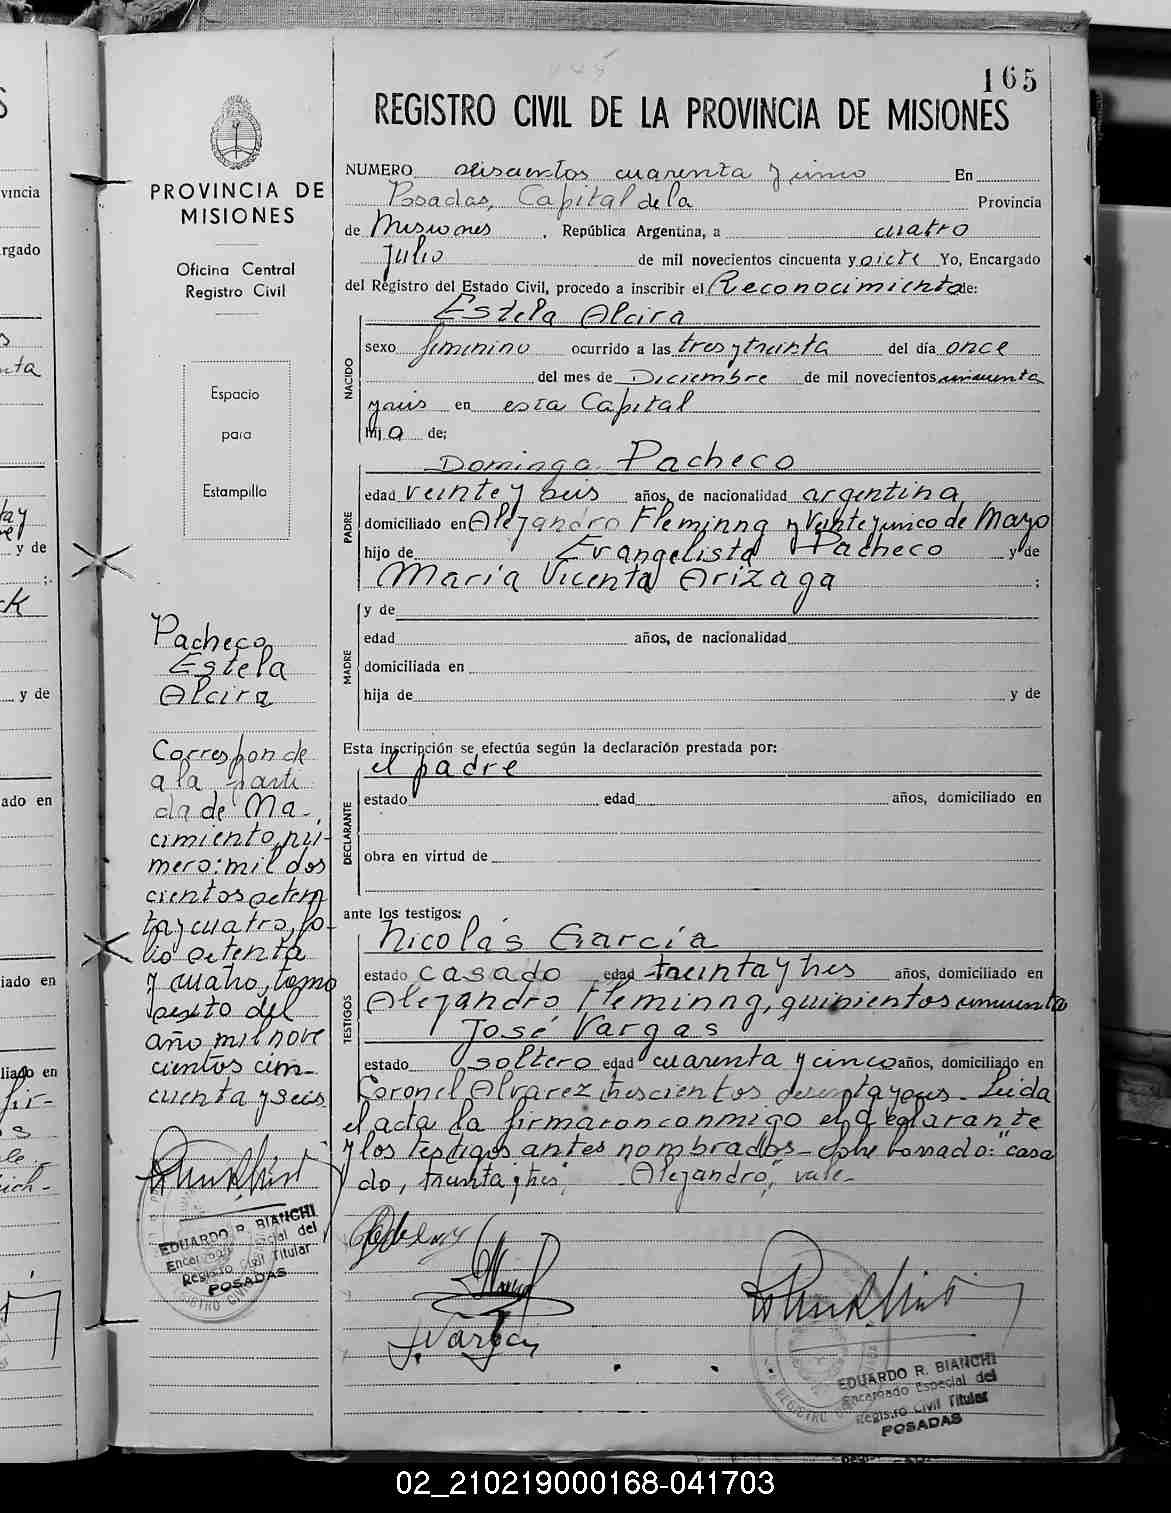 165
REGISTRO CIVIL DE LA PROVINCIA DE MISIONES
PROVINCIA DE
MISIONES
Oficina Central
Registro Civil
Espacio
para
Estampilla
Pacheco
Estela
Alcira
Corresponde
a la parti
da de Na-
cimiento, nú-
mero: mil dos
cientos seten
ta y cuatro, fo-
lio setenta
y cuatro, tomo
sexto del
año mil nove
cientos cin-
cuenta y seis
EDUARDO R. BIANCHI
Encargado Especial del
Registro Civil Titular
POSADAS
NUMERO seiscientos cuarenta y cinco En
Posadas, Capital de la Provincia
de Misiones, República Argentina, a cuatro
Julio de mil novecientos cincuenta y siete Yo, Encargado
del Registro del Estado Civil, procedo a inscribir el Reconocimiento de:
NACIDO
Estela Alcira
sexo femenino ocurrido a las tres y treinta del día once
del mes de Diciembre de mil novecientos cincuenta
y seis en esta Capital
hija de:
PADRE
Domingo Pacheco
edad veinte y seis años, de nacionalidad argentina
domiciliado en Alejandro Fleminng y Veinte y cinco de Mayo
hijo de Evangelista Pacheco y de
María Vicenta Arizaga ;
MADRE
y de
edad años, de nacionalidad
domiciliada en
hija de y de
Esta inscripción se efectúa según la declaración prestada por:
el padre
DECLARANTE
estado edad años, domiciliado en
obra en virtud de
ante los testigos:
TESTIGOS
Nicolás García
estado casado edad treinta y tres años, domiciliado en
Alejandro Fleminng, quinientos cincuenta
José Vargas
estado soltero edad cuarenta y cinco años, domiciliado en
Coronel Alvarez trescientos y seis - Leida
el acta la firmaron conmigo el declarante
y los testigos antes nombrados - Sobre borrado: "casa
do, treinta y tres, Alejandro", vale-
J. Vargas
EDUARDO R. BIANCHI
Encargado Especial del
Registro Civil Titular
POSADAS
02_210219000168-041703